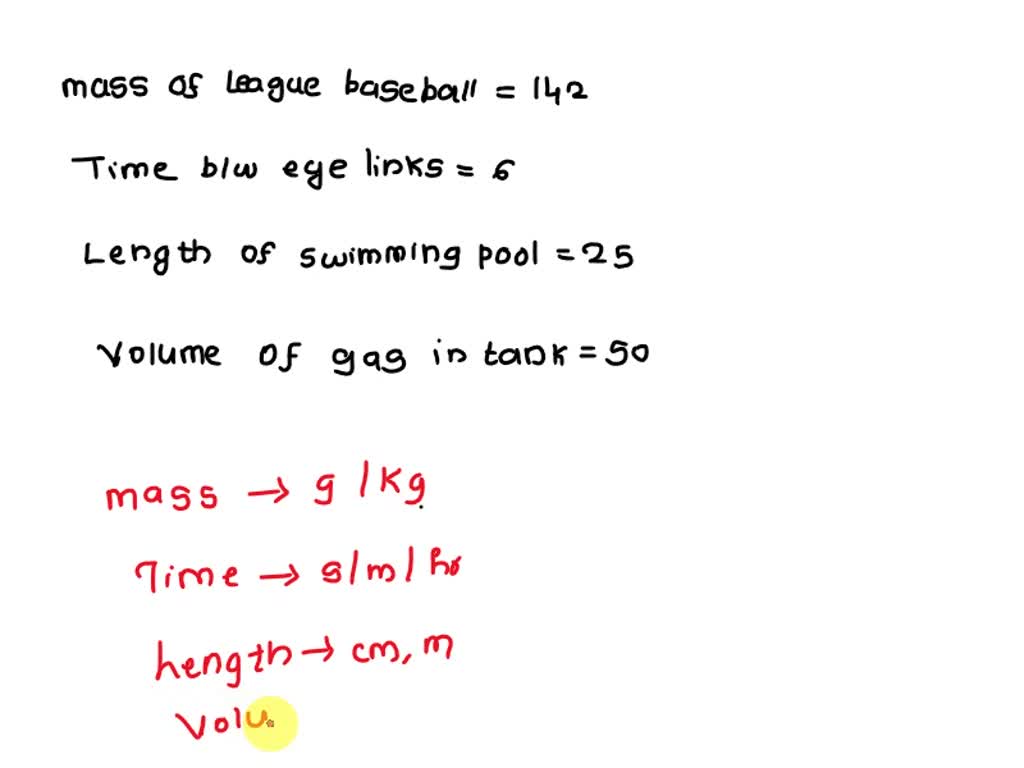 mass of league baseball = 142
Time b/w eye links = 6
Length of swimming pool = 25
Volume of gas in tank = 50
mass → g / kg
Time → s/m/hr
Length → cm, m
Volu